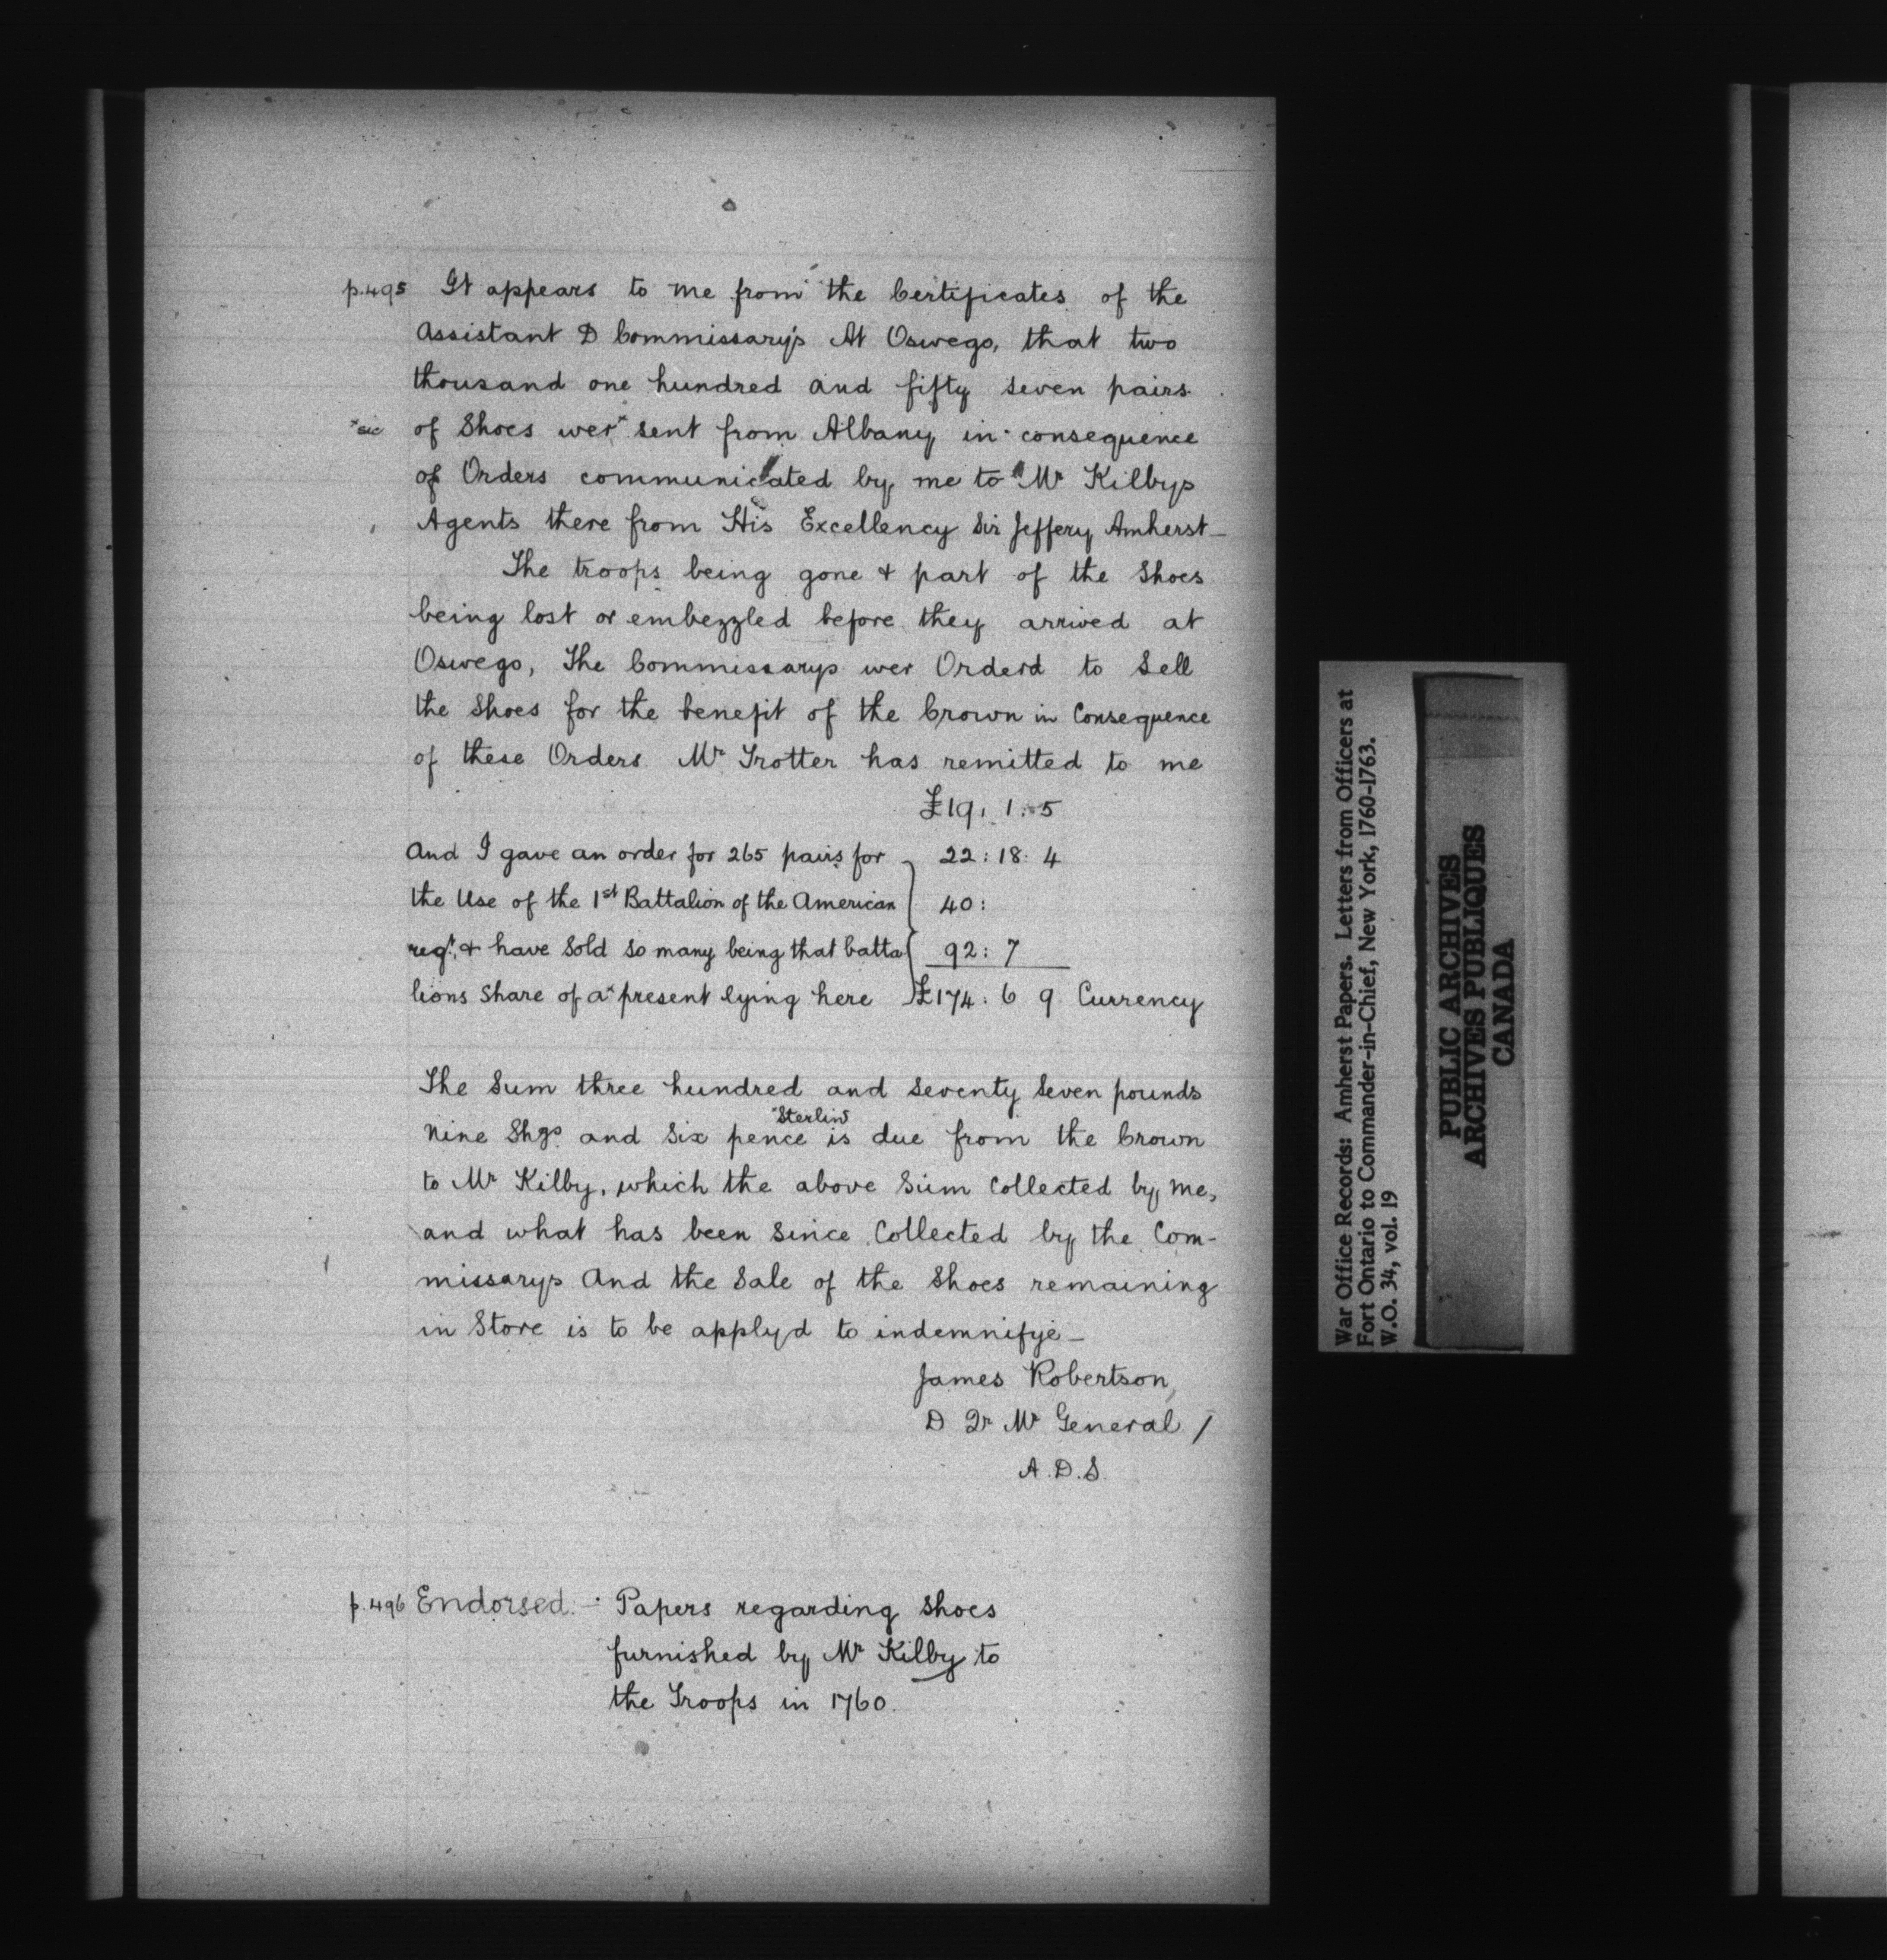 p.495 It appears to me from the Certificates of the
Assistant D Commissary's At Oswego, that two
thousand one hundred and fifty seven pairs
*sic of Shoes wer* sent from Albany in consequence
of Orders communicated by me to Mr Kilbys
Agents there from His Excellency Sir Jeffery Amherst_
The troops being gone & part of the Shoes
being lost or embezzled before they arrived at
Oswego, The Commissarys wer Orderd to Sell
the Shoes for the benefit of the Crown in Consequence
of these Orders Mr Trotter has remitted to me
£19, 1: 5
And I gave an order for 265 pairs for 22: 18: 4
the Use of the 1st Battalion of the American 40:
regt, & have Sold so many being that batta 92: 7
lions Share of a* present lying here £174: 6 9 Currency
The Sum three hundred and Seventy Seven pounds
Sterling
Nine Shgs and Six pence is due from the Crown
to Mr Kilby, which the above Sum Collected by me,
and what has been Since Collected by the Com-
missarys And the Sale of the Shoes remaining
in Store is to be apply'd to indemnifye_
James Robertson,
D Qr Mr General /
A.D.S.
p.496 Endorsed:- Papers regarding Shoes
furnished by Mr Kilby to
the Troops in 1760.
War Office Records: Amherst Papers. Letters from Officers at
Fort Ontario to Commander-in-Chief, New York, 1760-1763.
W.O. 34, vol. 19
PUBLIC ARCHIVES
ARCHIVES PUBLIQUES
CANADA